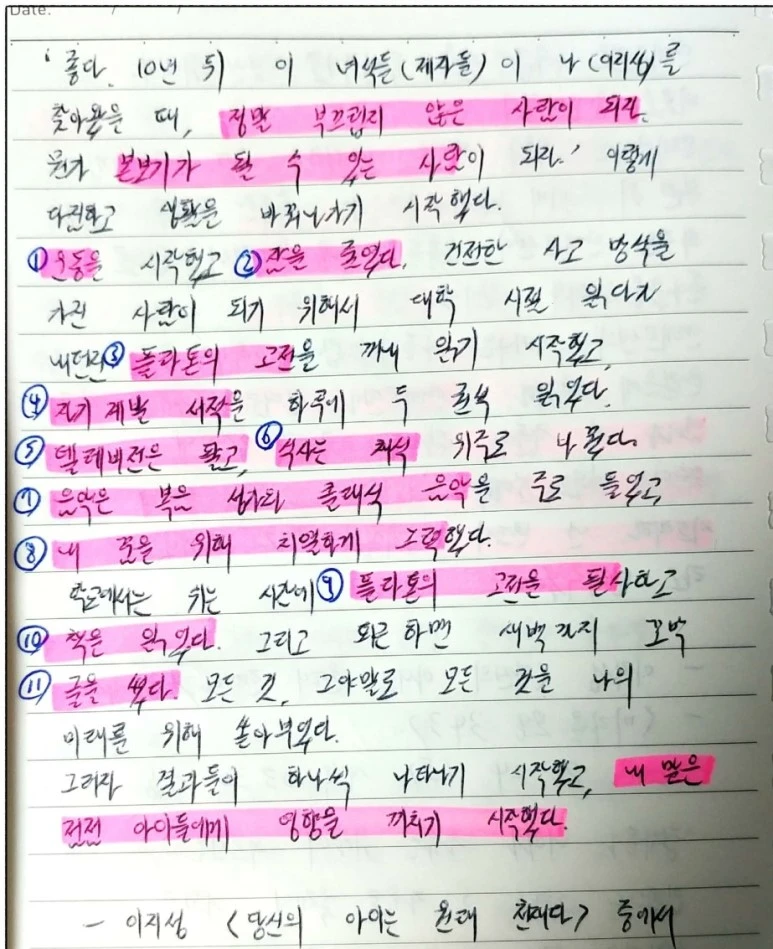 Date.      /      /
'좋다. 10년 뒤 이 녀석들(제자들)이 나(이지성)를
찾아왔을 때, 정말 부끄럽지 않은 사람이 되자.
뭔가 본보기가 될 수 있는 사람이 되자.' 이렇게
다짐하고 생활을 바꿔나가기 시작했다.
① 운동을 시작했고 ② 잠을 줄였다. 건전한 사고 방식을
가진 사람이 되기 위해서 대학 시절 읽다가
내던진 ③ 플라톤의 고전을 꺼내 읽기 시작했고,
④ 자기 계발 서적을 하루에 두 권씩 읽었다.
⑤ 텔레비전은 팔고, ⑥ 식사는 채식 위주로 바꿨다.
⑦ 음악은 복음 성가와 클래식 음악을 주로 들었고,
⑧ 내 꿈을 위해 치열하게 노력했다.
학교에서는 쉬는 시간에 ⑨ 플라톤의 고전을 필사하고
⑩ 책을 읽었다. 그리고 퇴근하면 새벽까지 꼬박
⑪ 글을 썼다. 모든 것, 그야말로 모든 것을 나의
미래를 위해 쏟아부었다.
그러자 결과들이 하나씩 나타나기 시작했고, 내 말은
점점 아이들에게 영향을 끼치기 시작했다.
- 이지성 <당신의 아이는 원래 천재다> 중에서